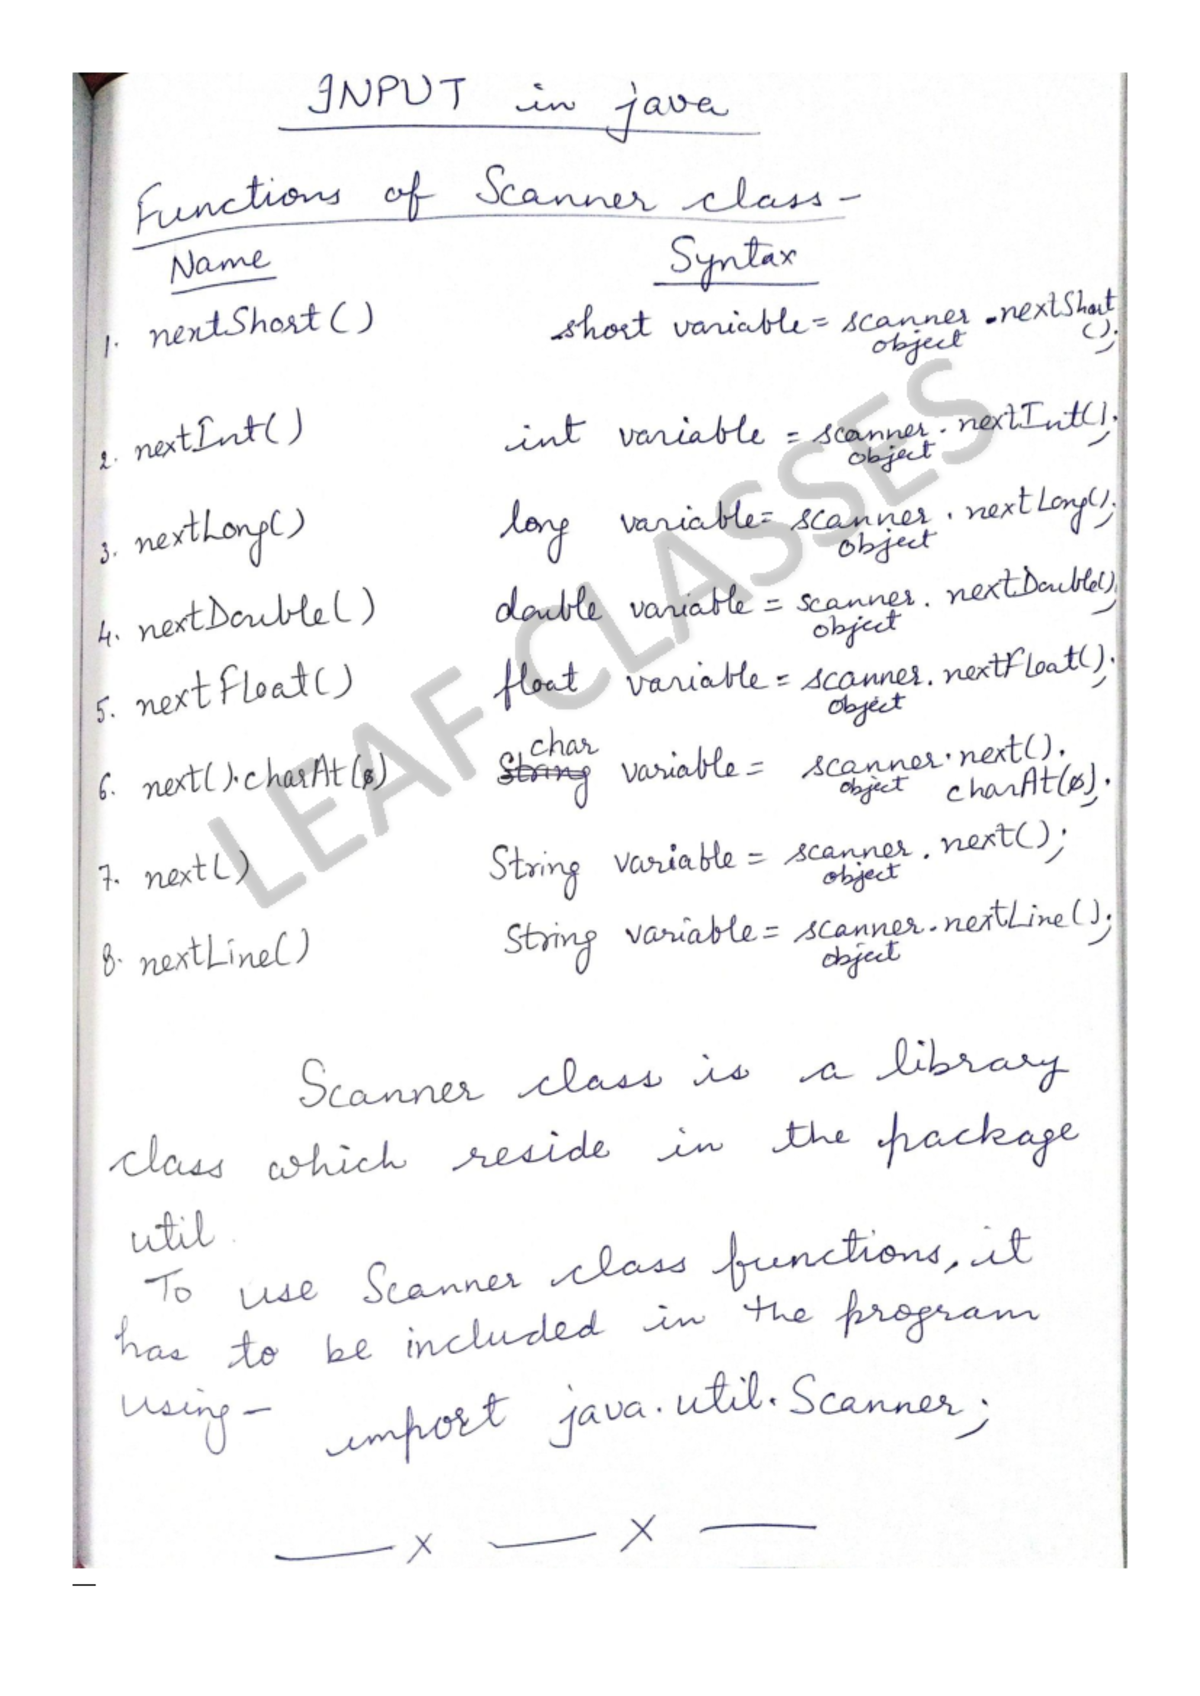 INPUT in java
Functions of Scanner class -
Name Syntax
1. nextShort() short variable = scanner .nextShort
object ();
2. nextInt() int variable = scanner. nextInt();
object
3. nextLong() long variable= scanner. nextLong();
object
4. nextDouble() double variable = scanner. nextDouble();
object
5. nextFloat() float variable = scanner. nextFloat();
object
char
6. next().charAt(0) String variable = scanner.next().
object charAt(0);
7. next() String variable = scanner. next();
object
8. nextLine() String variable = scanner.nextLine();
object
LEAF CLASSES
Scanner class is a library
class which reside in the package
util.
To use Scanner class functions, it
has to be included in the program
using - import java.util.Scanner;
— x — x —